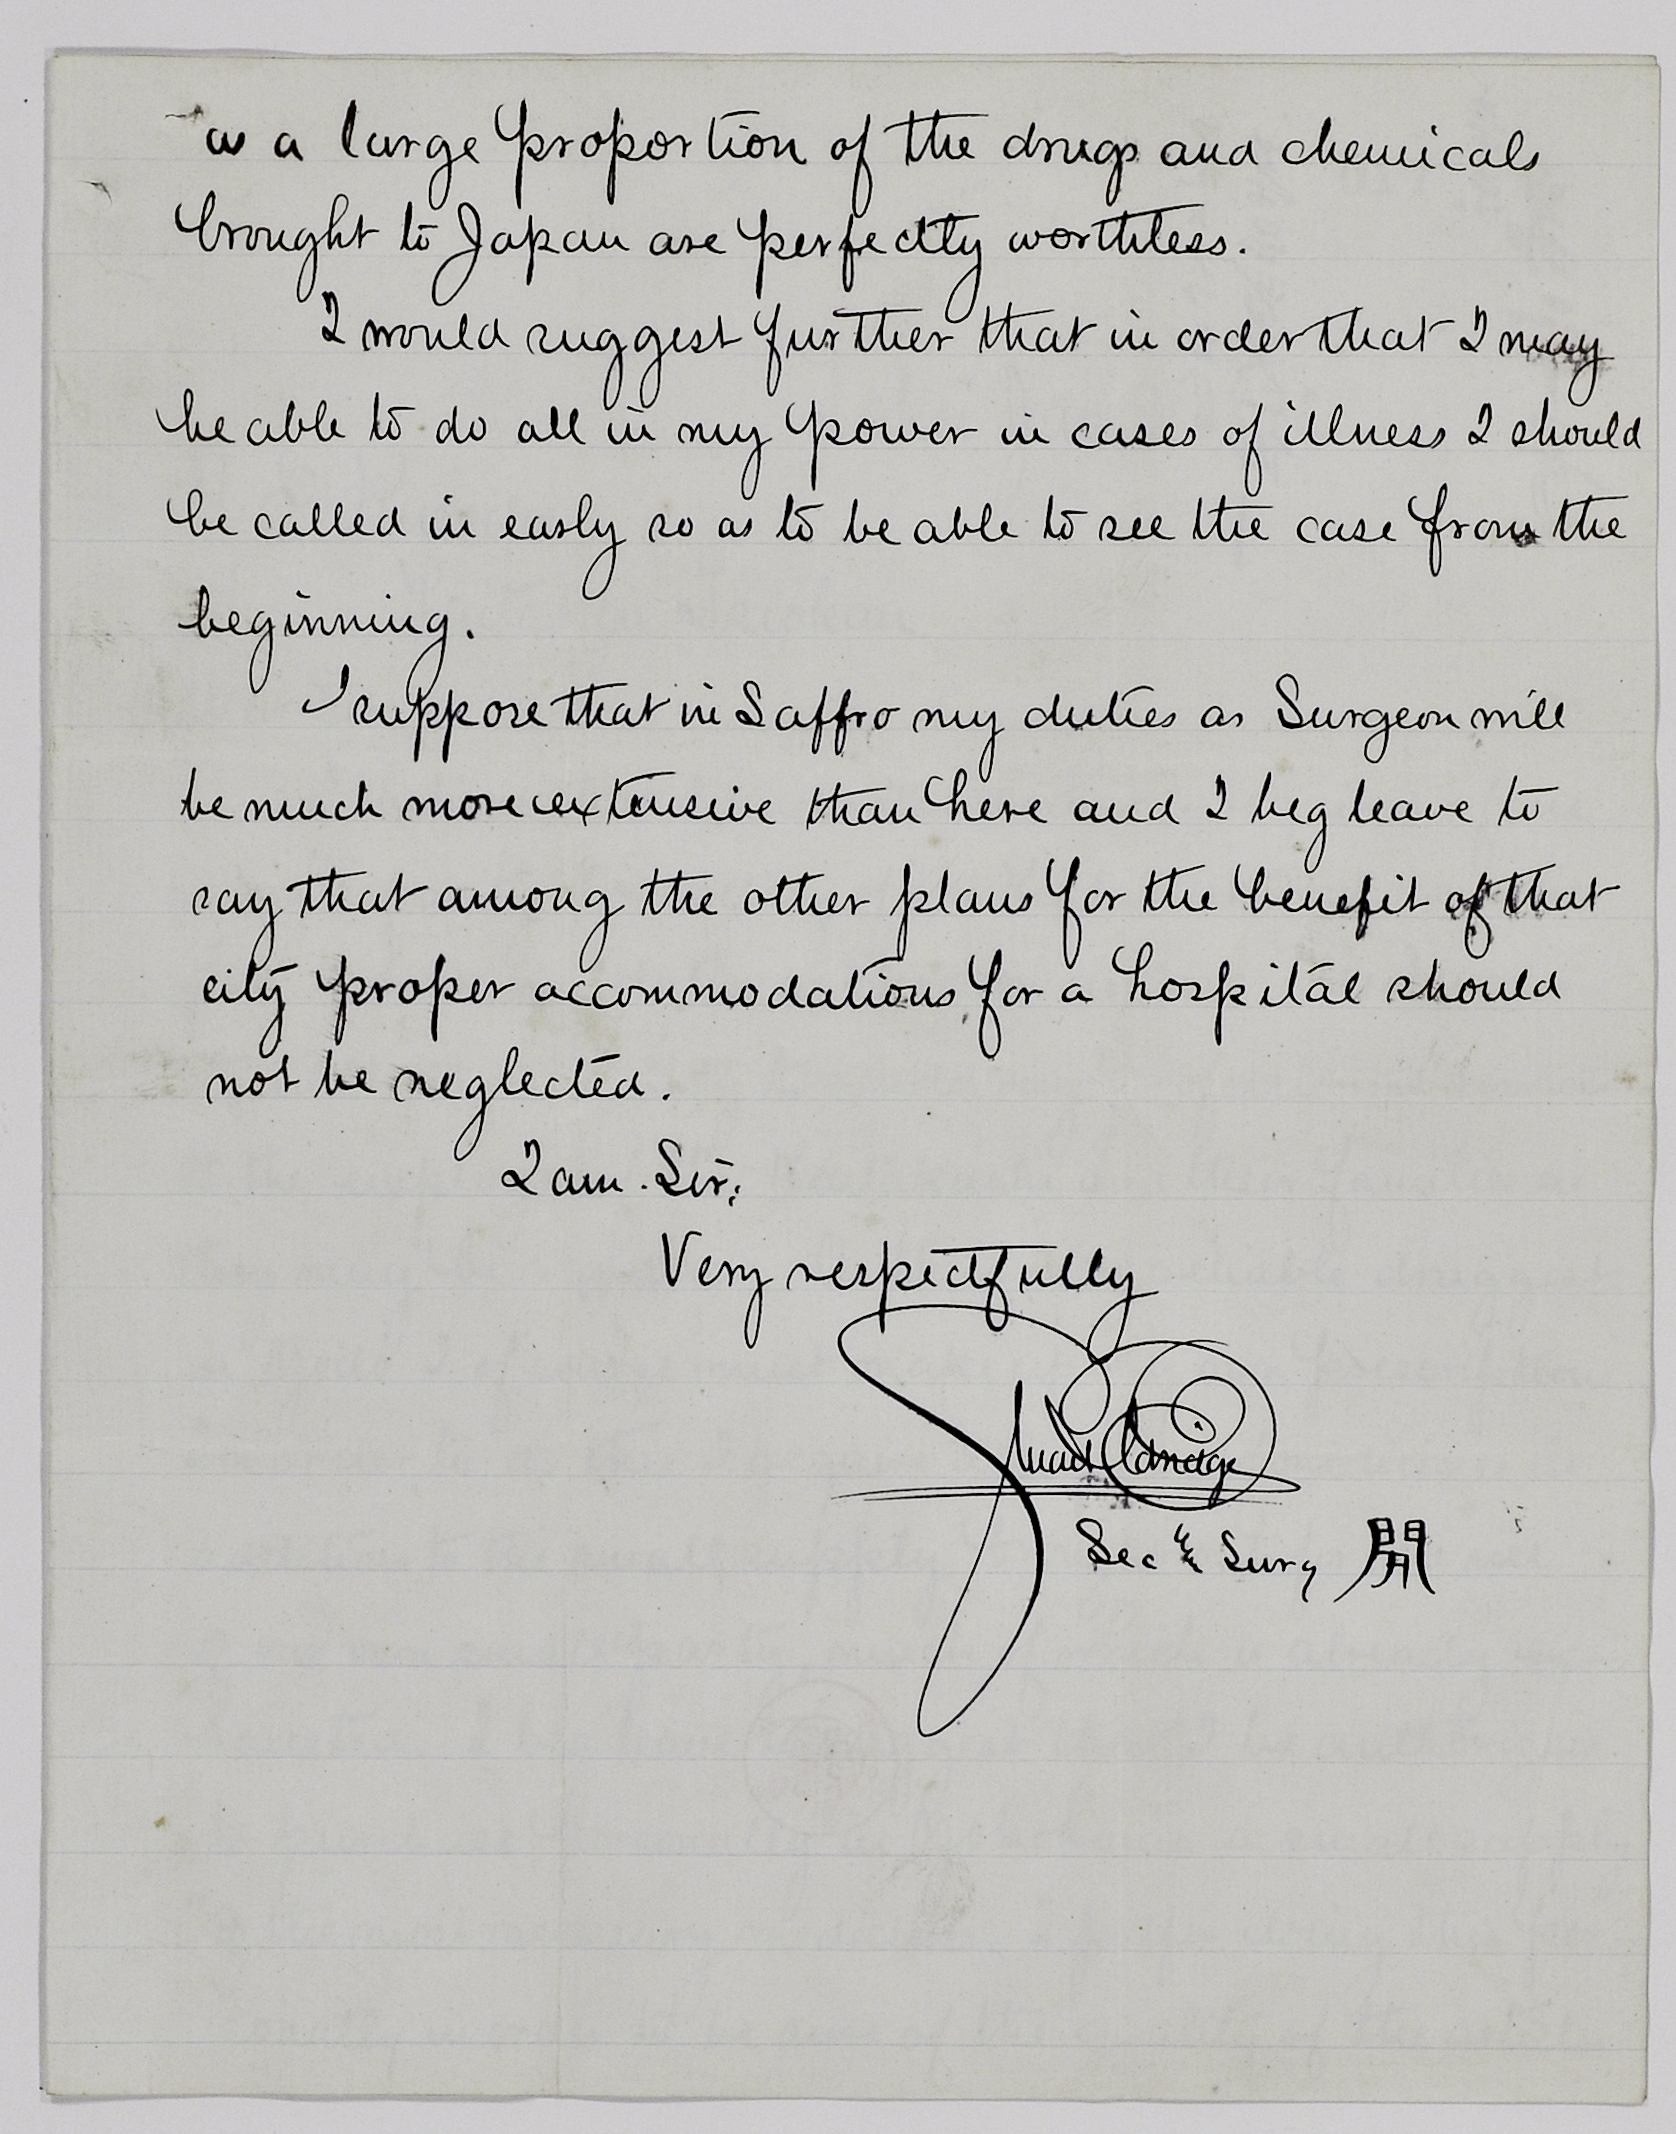 as a large proportion of the drugs and chemicals
brought to Japan are perfectly worthless.
I would suggest further that in order that I may
be able to do all in my power in cases of illness I should
be called in early so as to be able to see the case from the
beginning.
I suppose that in Saffro my duties as Surgeon will
be much more extensive than here and I beg leave to
say that among the other plans for the benefit of that
city proper accommodations for a hospital should
not be neglected.
I am Sir;
Very respectfully
Stuart Eldridge
Sec & Surg 開